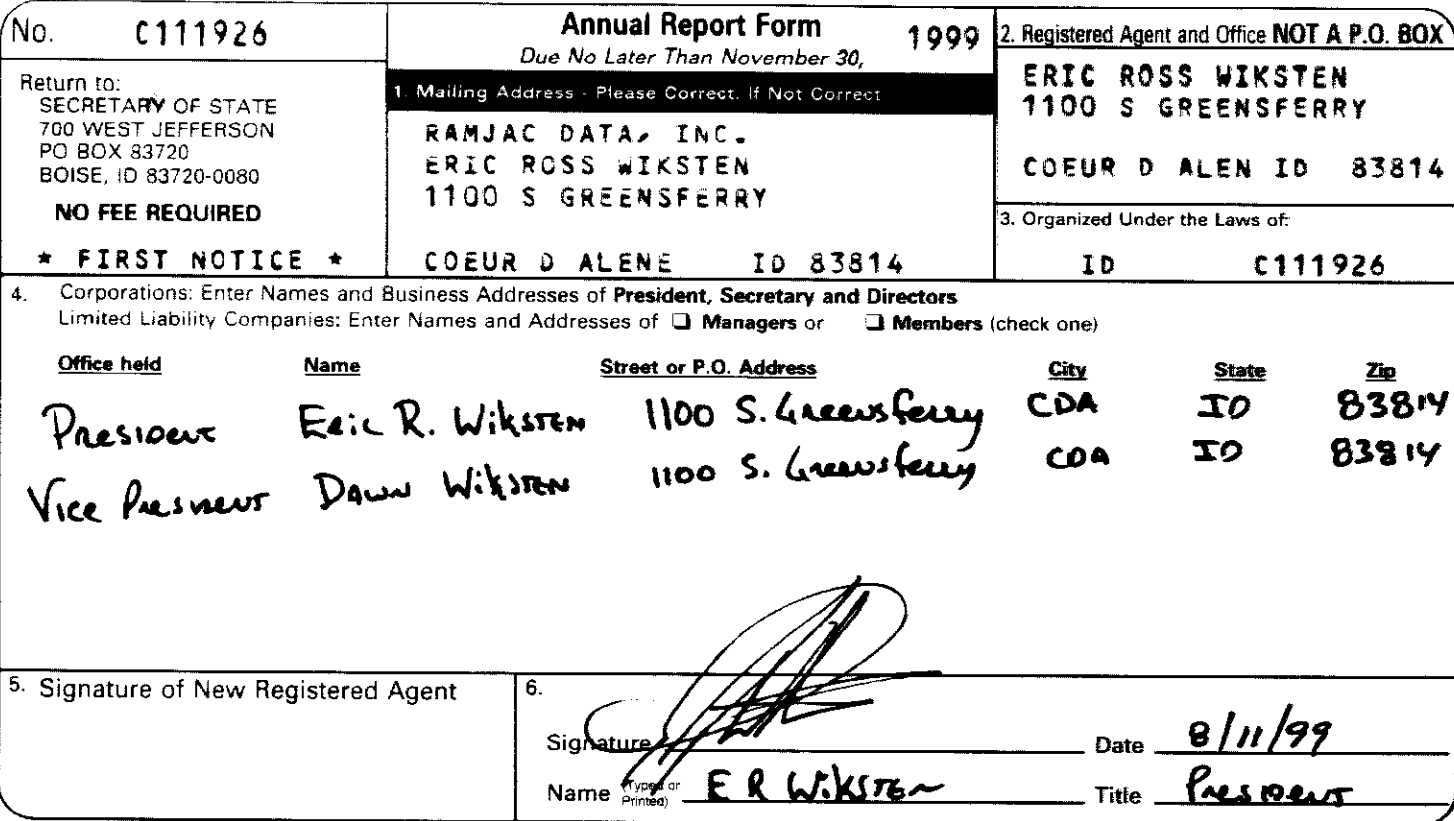 No. C111926
Return to:
SECRETARY OF STATE
700 WEST JEFFERSON
PO BOX 83720
BOISE, ID 83720-0080
NO FEE REQUIRED
* FIRST NOTICE *
Annual Report Form 1999
Due No Later Than November 30,
1. Mailing Address - Please Correct, If Not Correct
RAMJAC DATA, INC.
ERIC ROSS WIKSTEN
1100 S GREENSFERRY
COEUR D ALENE ID 83814
2. Registered Agent and Office NOT A P.O. BOX
ERIC ROSS WIKSTEN
1100 S GREENSFERRY
COEUR D ALEN ID 83814
3. Organized Under the Laws of:
ID C111926
4. Corporations: Enter Names and Business Addresses of President, Secretary and Directors
Limited Liability Companies: Enter Names and Addresses of ❏ Managers or ❏ Members (check one)
Office held Name Street or P.O. Address City State Zip
President Eric R. Wiksten 1100 S. Greensferry CDA ID 83814
Vice President Dawn Wiksten 1100 S. Greensferry CDA ID 83814
5. Signature of New Registered Agent
6.
Signature Date 8/11/99
Name (Typed or Printed) E R Wiksten Title President